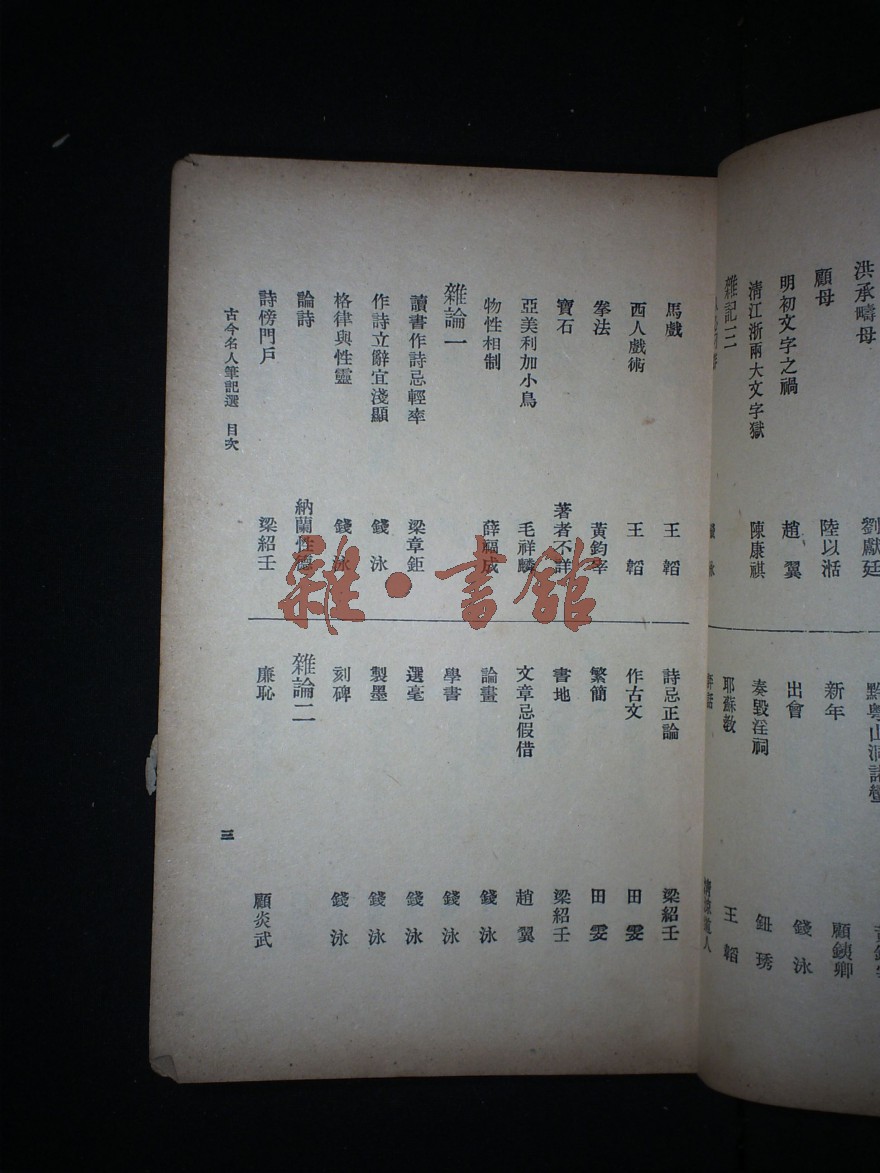 洪承疇母 劉獻廷
顧母 陸以湉
明初文字之禍 趙翼
清江浙兩大文字獄 陳康祺
雜記三
新年 顧鐵卿
出會 錢泳
奏毀淫祠 鈕琇
耶蘇教 王韜
馬戲 王韜
西人戲術 王韜
拳法 黃鈞宰
寶石 著者不詳
亞美利加小鳥 毛祥麟
物性相制 薛福成
雜論一
讀書作詩忌輕率 梁章鉅
作詩立辭宜淺顯 錢泳
格律與性靈 錢泳
論詩 納蘭性德
詩傍門戶 梁紹壬
詩忌正論 梁紹壬
作古文 田雯
繁簡 田雯
書地 梁紹壬
文章忌假借 趙翼
論畫 錢泳
學書 錢泳
選毫 錢泳
製墨 錢泳
刻碑 錢泳
雜論二
廉恥 顧炎武
古今名人筆記選 目次
三
雜·書館